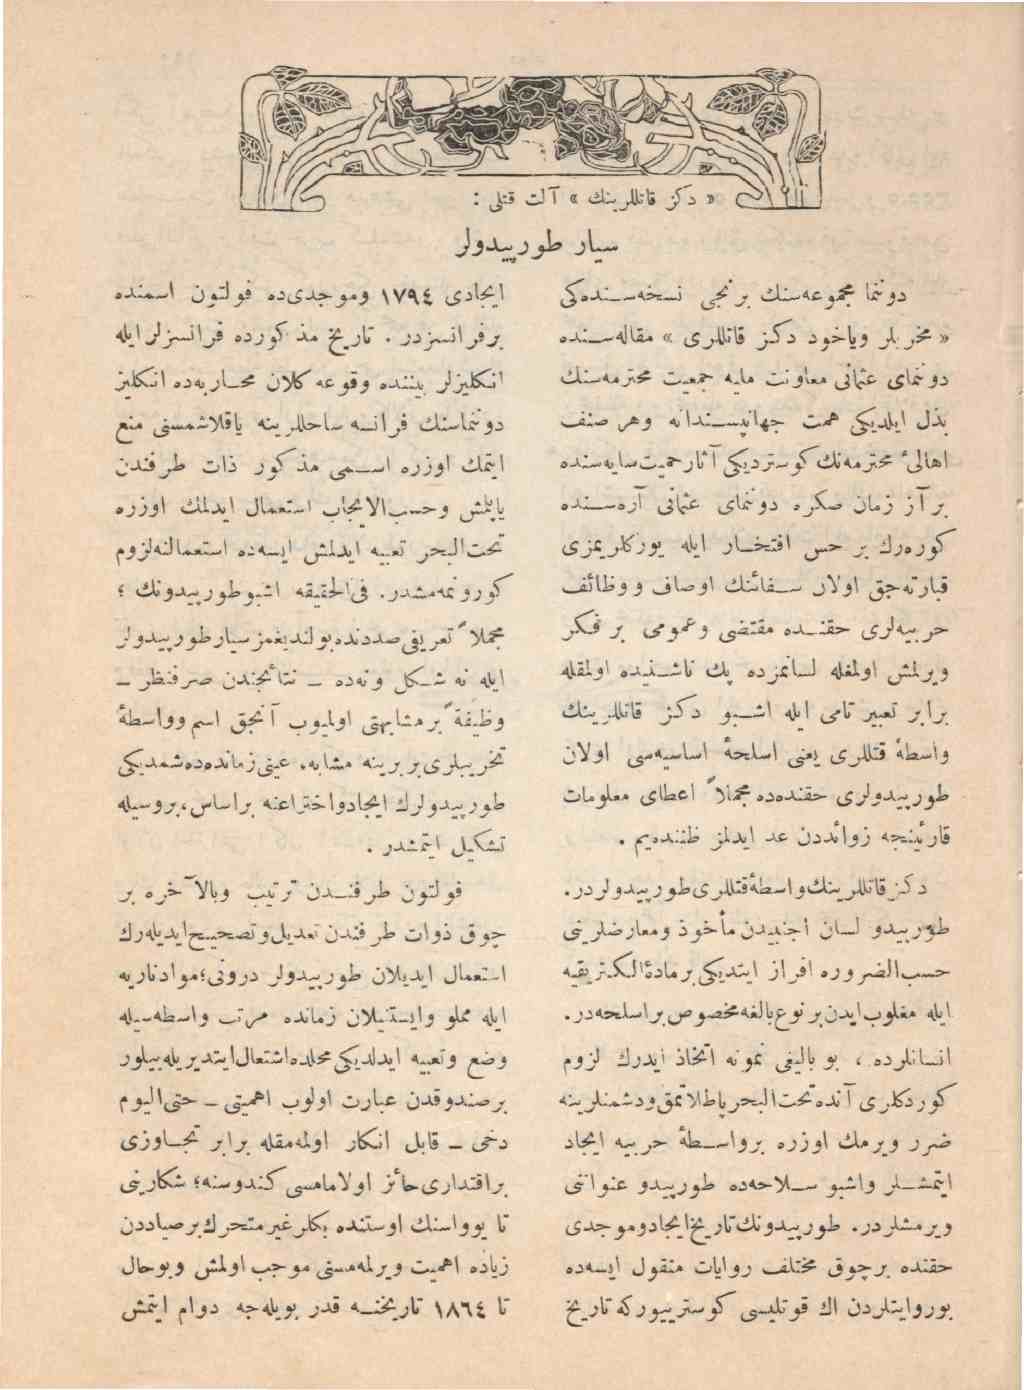 « دكز قاتللرينك » آلت قتلى :
سيار طورپيدولر
دوننما مجموعه‌سنك برنجى نسخه‌سنده‌كى
« مخربلر وياخود دكز قاتللرى » مقاله‌سنده
دوننماى عثمانى معاونت مليه جمعيت محترمه‌سنك
بذل ايلديكى همت جهانپسندانه وهر صنف
اهالئ محترمه‌نك كوسترديكى آثار حميت سايه‌سنده
بر آز زمان صكره دوننماى عثمانى آره‌سنده
كوره‌رك بر حس افتخار ايله يوركلريمزى
قبارته‌جق اولان سفائنك اوصاف ووظائف
حربيه‌لرى حقنده مقتضى وعمومى بر فكر
ويرلمش اولمغله لسانمزده پك ناشنيده اولمقله
برابر تعبير تامى ايله اشبو دكز قاتللرينك
واسطهٔ قتللرى يعنى اسلحهٔ اساسيه‌سى اولان
طورپيدولرى حقنده‌ده مجملاً اعطاى معلومات
قارئينجه زوائددن عد ايدلمز ظننده‌يم .
دكز قاتللرينك واسطهٔ قتللرى طورپيدولردر.
طورپيدو لسان اجنبيدن مأخوذ ومعارضلرينى
حسب‌الضروره افراز ايتديكى برمادهٔ الكتريقيه
ايله مغلوب ايدن برنوع بالغه مخصوص براسلحه‌در.
انسانلرده ، بو باليغى نمونه اتخاذ ايدرك لزوم
كوردكلرى آنده تحت‌البحر پاطلاتمق ودشمنلرينه
ضرر ويرمك اوزره برواسطهٔ حربيه ايجاد
ايتمشلر واشبو سلاحه‌ده طورپيدو عنواننى
ويرمشلردر. طورپيدونك تاريخ ايجادوموجدى
حقنده برچوق مختلف روايات منقول ايسه‌ده
بوروايتلردن اك قوتليسى كوسترييوركه تاريخ
ايجادى ١٧٩٤ وموجدى‌ده فولتون اسمنده
برفرانسزدر . تاريخ مذكورده فرانسزلر ايله
انكليزلر بيننده وقوعه كلان محاربه‌ده انكليز
دوننماسنك فرانسه ساحللرينه ياقلاشمسنى منع
ايتمك اوزره اسمى مذكور ذات طرفندن
ياپلمش وحسب‌الايجاب استعمال ايدلمك اوزره
تحت‌البحر تعبيه ايدلمش ايسه‌ده استعمالنه‌لزوم
كورونمه‌مشدر. فى‌الحقيقه اشبوطورپيدونك ؛
مجملاً تعريفى صددنده‌بولنديغمز سيارطورپيدولر
ايله نه شكل ونه‌ده ــ نتائجندن صرفنظر ــ
وظيفةً برمشابهتى اولميوب آنجق اسم وواسطهٔ
تخريبلرى بربرينه مشابه، عينى‌زمانده‌ده‌شمديكى
طورپيدولرك ايجادواختراعنه براساس، بروسيله
تشكيل ايتمشدر .
فولتون طرفندن ترتيب وبالآخره بر
چوق ذوات طرفندن تعديل‌وتصحيح‌ايديله‌رك
استعمال ايديلان طورپيدولر درونى؛موادناريه
ايله مملو وايستنيلان زمانده مرتب واسطه‌سيله
وضع وتعبيه ايدلديكى محلده‌اشتعال‌ايتديريله‌بيلور
برصندوقدن عبارت اولوب اهميتى ــ حتى‌اليوم
دخى ــ قابل انكار اولمه‌مقله برابر تجاوزى
براقتدارى‌حائز اولامامسى كندوسنه؛ شكارينى
تا يوواسنك اوستنده بكلرغيرمتحرك‌برصياددن
زياده اهميت ويرلمه‌مسنى موجب اولمش وبوحال
تا ١٨٦٤ تاريخنه قدر بويله‌جه دوام ايتمش